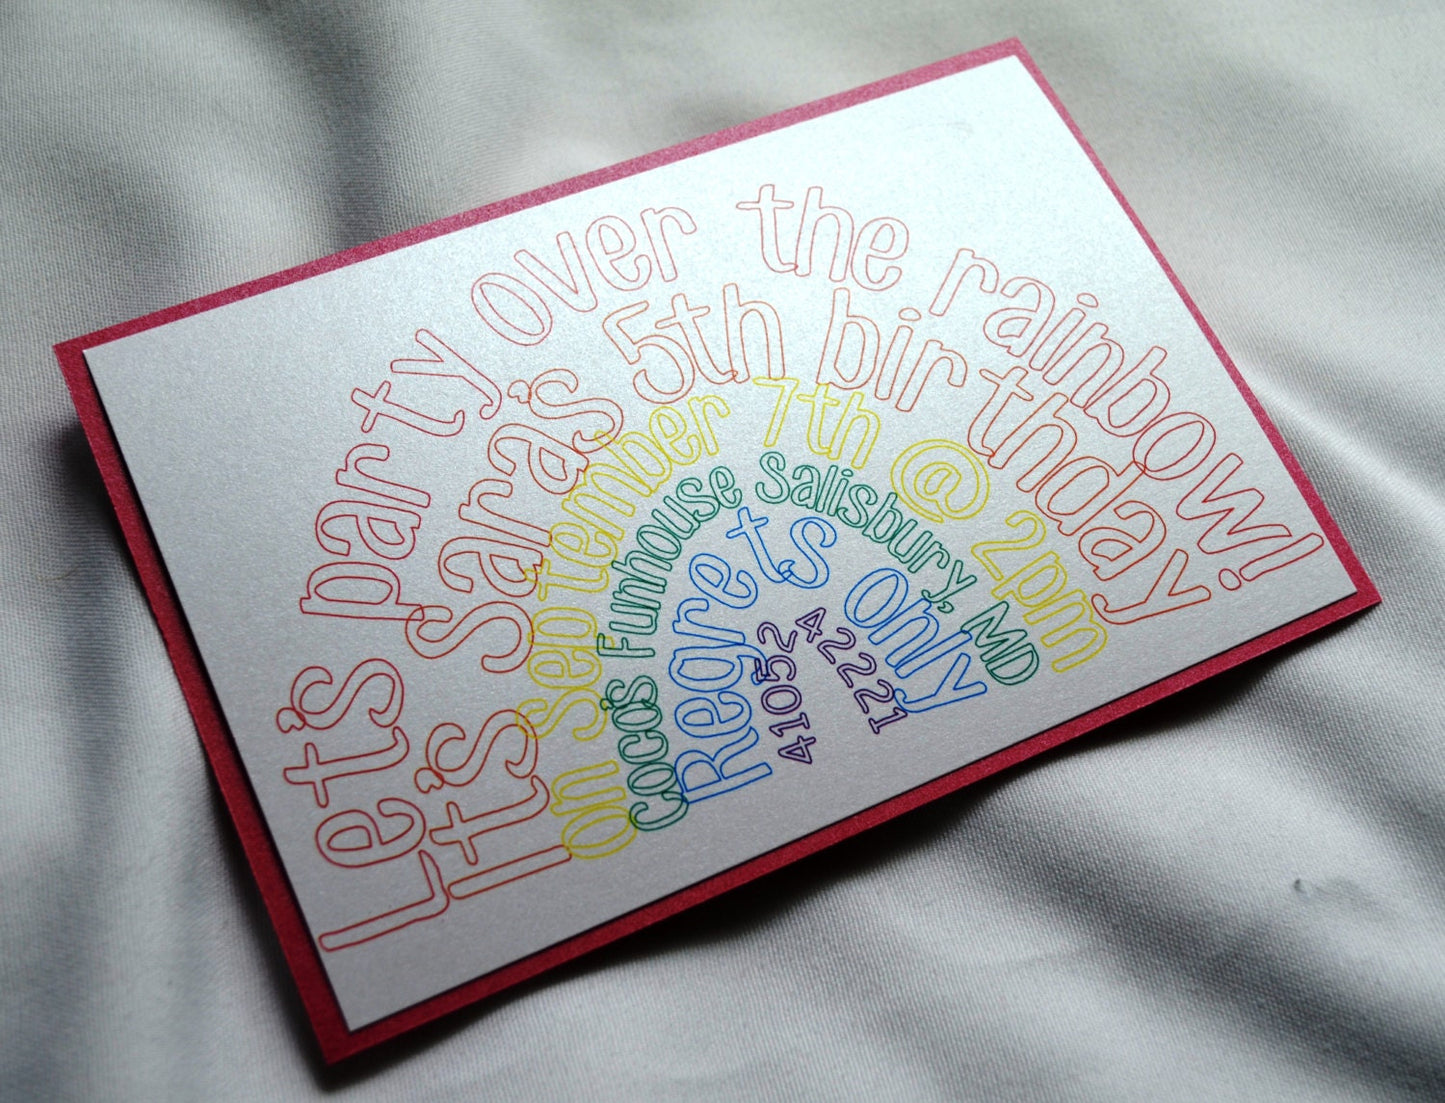 Let's party over the rainbow!
It's Sara's 5th birthday!
on September 7th @ 2pm
Coco's Funhouse Salisbury, MD
Regrets only
4105242221